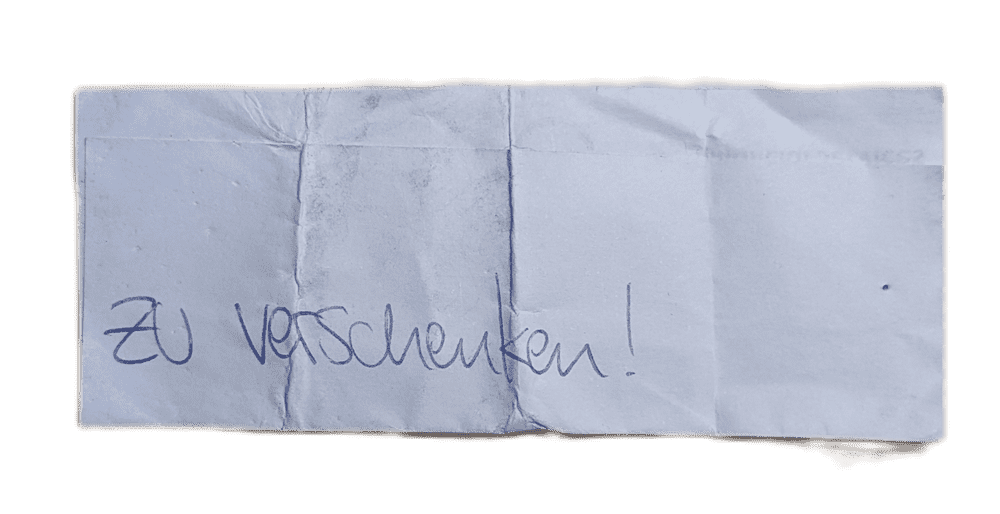 Zu verschenken!